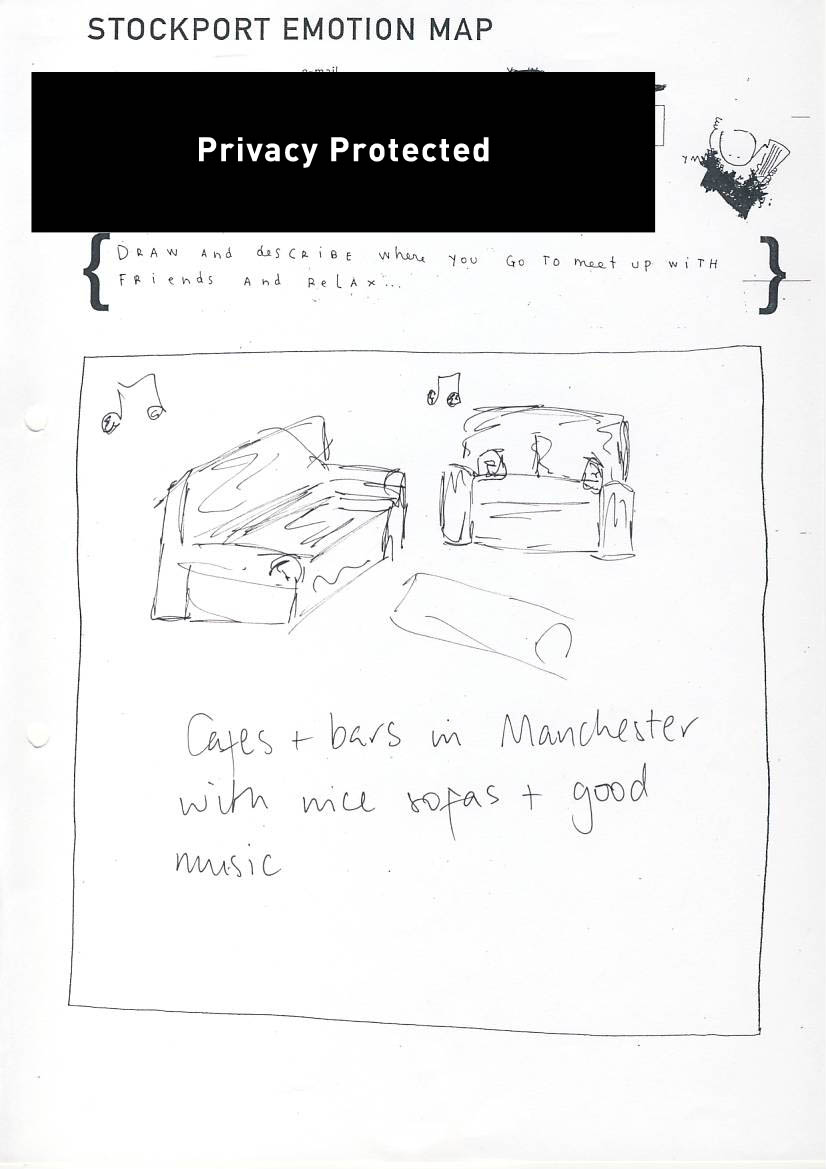 STOCKPORT EMOTION MAP
e-mail
Privacy Protected
DRAW And desCRiBE where you Go To meet up wiTH
FRiends And ReLAx...
Cafes + bars in Manchester
with nice sofas + good
music